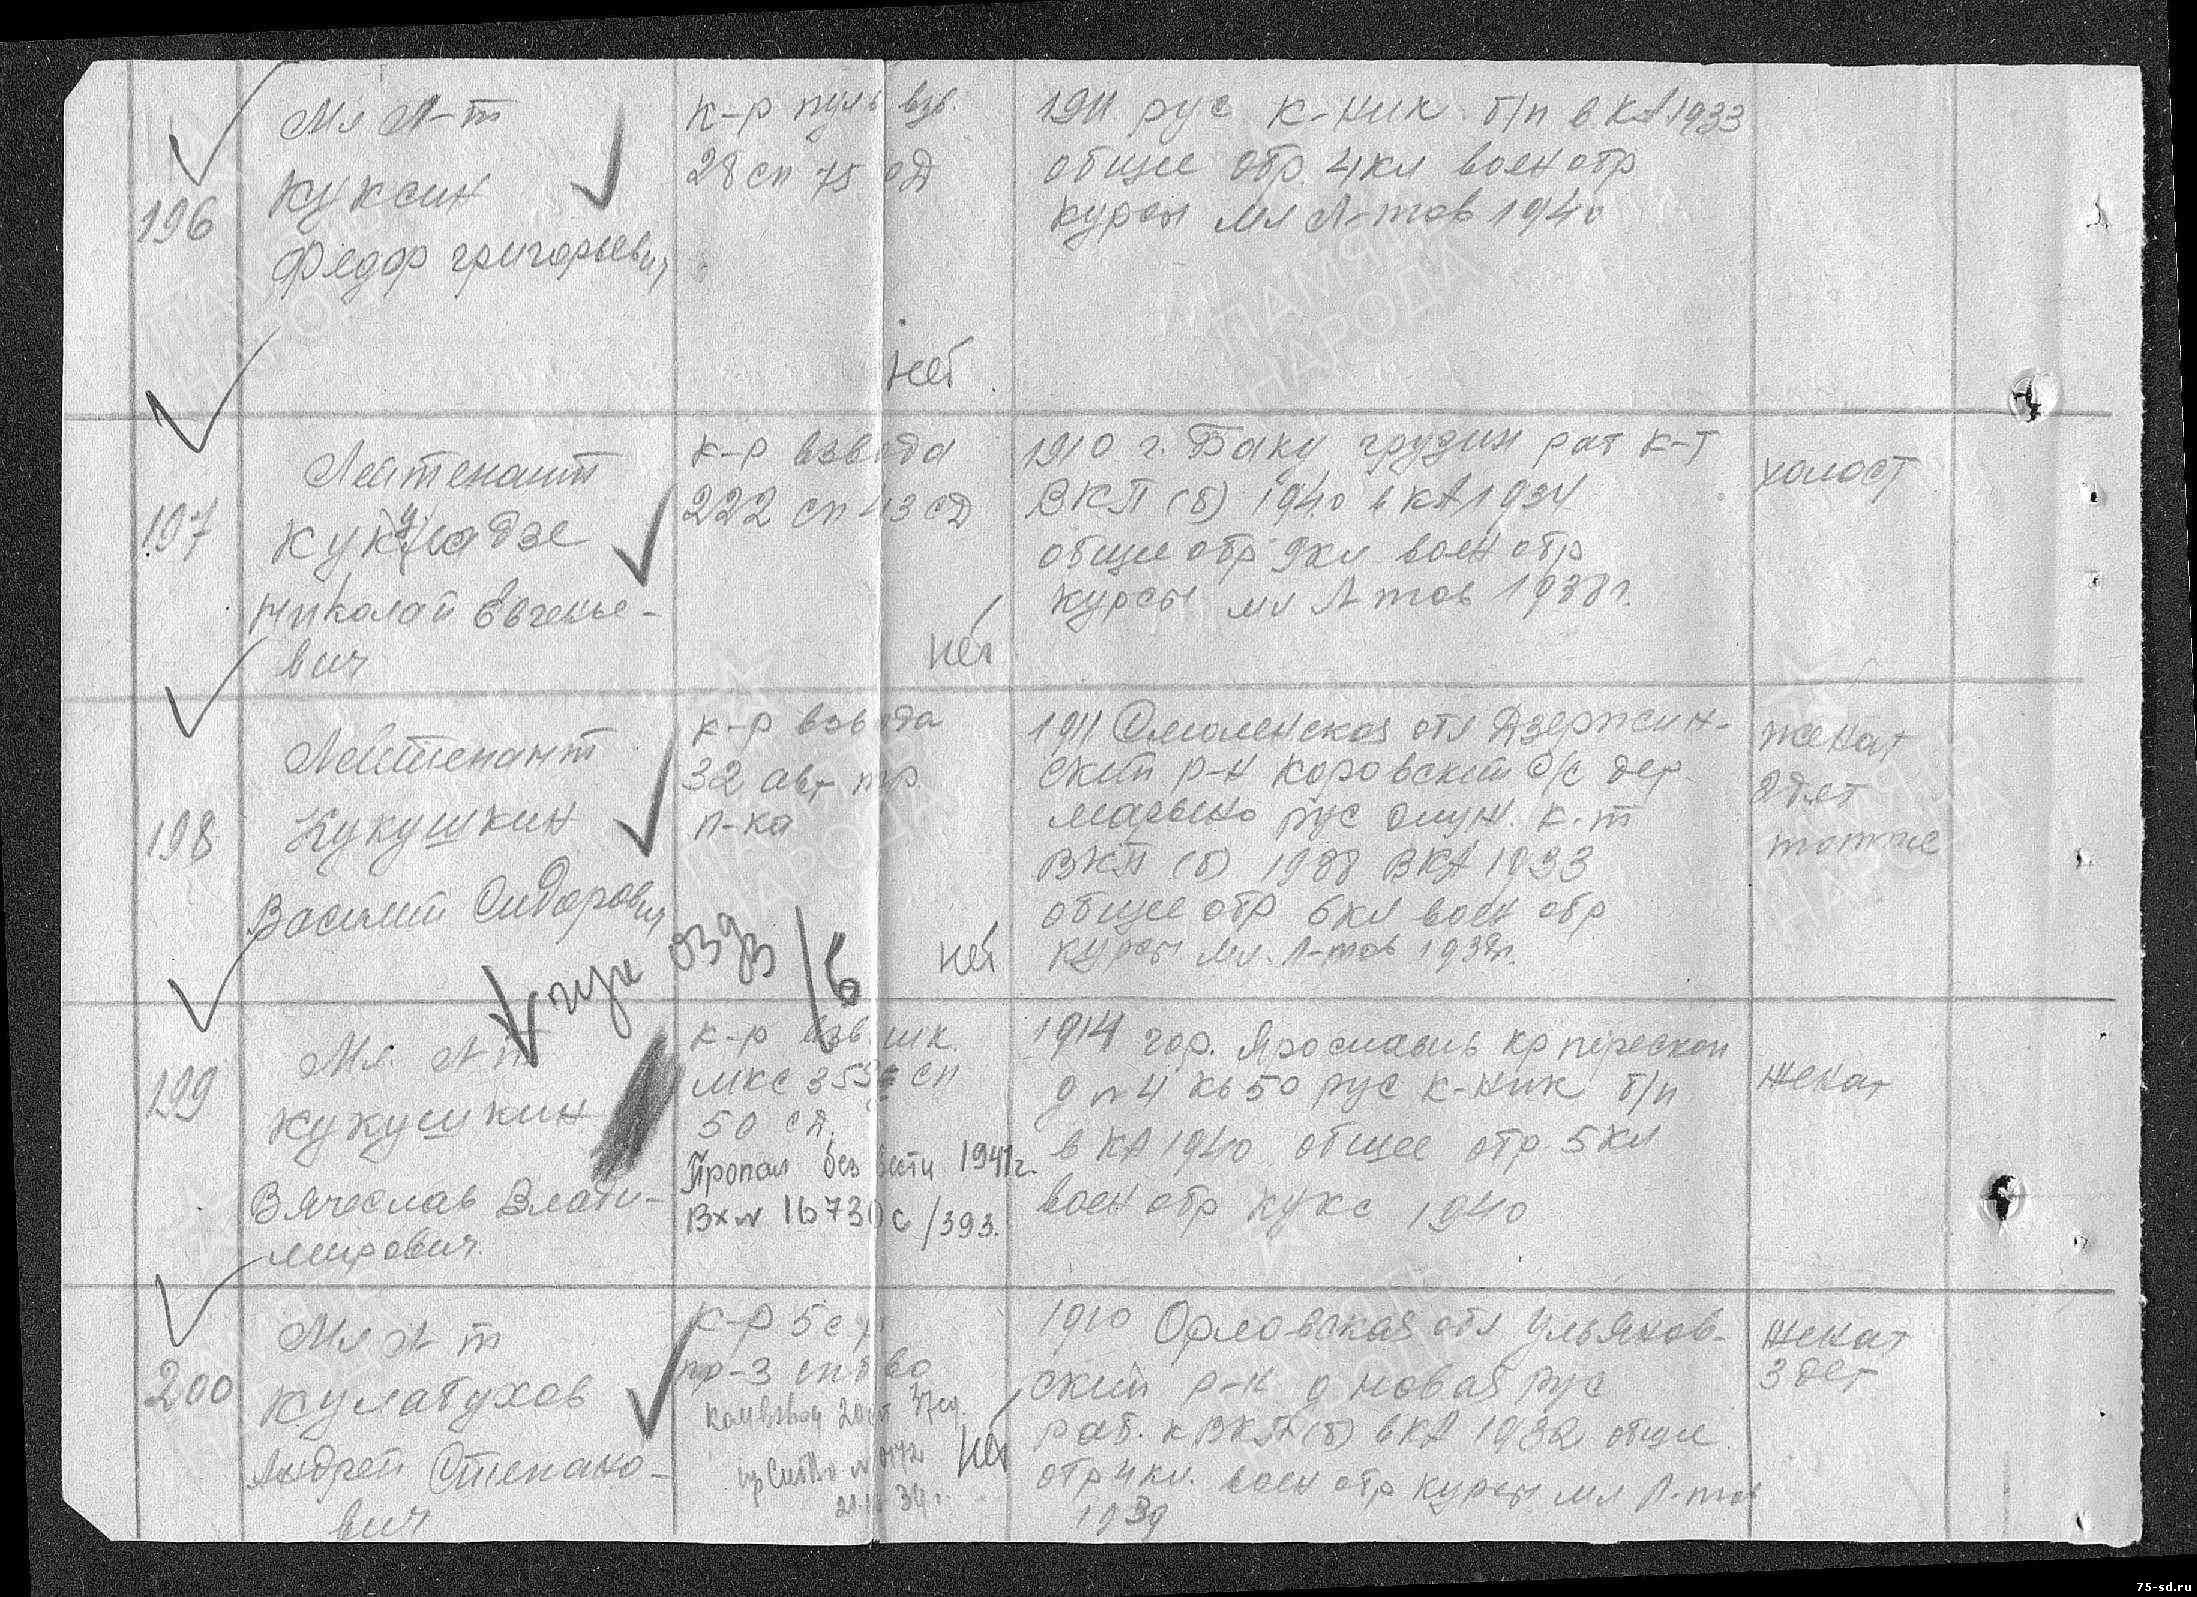 196
Мл Л-т
Куксин
Федор Григорьевич
к-р пуль взв.
28 сп 75 сд
нет
1911 рус к-ник б/п в КА 1933
общее обр 4кл воен обр
курсы мл Л-тов 1940
197
Лейтенант
Николай Евгенье-
вич
к-р взвода
222 сп 43 сд
нет
1910 г. Баку грузин раб к-т
ВКП (б) 1940 в КА 1934
общее обр 9кл воен обр
курсы мл Л-тов 1938г.
холост
198
Лейтенант
Кукушкин
Василий Сидорович
к-р взвода
32 авт тр
п-ка
нет
1911 Смоленская обл Дзержин-
ский р-н Коровский с/с дер
Марьино рус служ. к-т
ВКП (б) 1938 ВКА 1933
общее обр 6кл воен обр
курсы мл. Л-тов 1938г.
женат
2 дет
199
Мл Л-т
Кукушкин
Вячеслав Влади-
мирович
к-р взв шк
мкс 359 сп
50 сд.
Пропал без вести 1941г.
Вх № 16730с/393.
1914 гор. Ярославль
д №4 кв 50 рус к-ник б/п
в КА 1940 общее обр. 5кл
воен обр Кукс 1940
женат
200
Мл Л-т
Кулабухов
Андрей Степано-
вич
к-р
нет
1910 Орловская обл Ульянов-
ский р-н д Новая рус
раб. к ВКП(б) в КА 1932 общее
обр 4кл. воен обр курсы мл Л-тов
1939
женат
3 дет
ПАМЯТЬ
НАРОДА
75-sd.ru